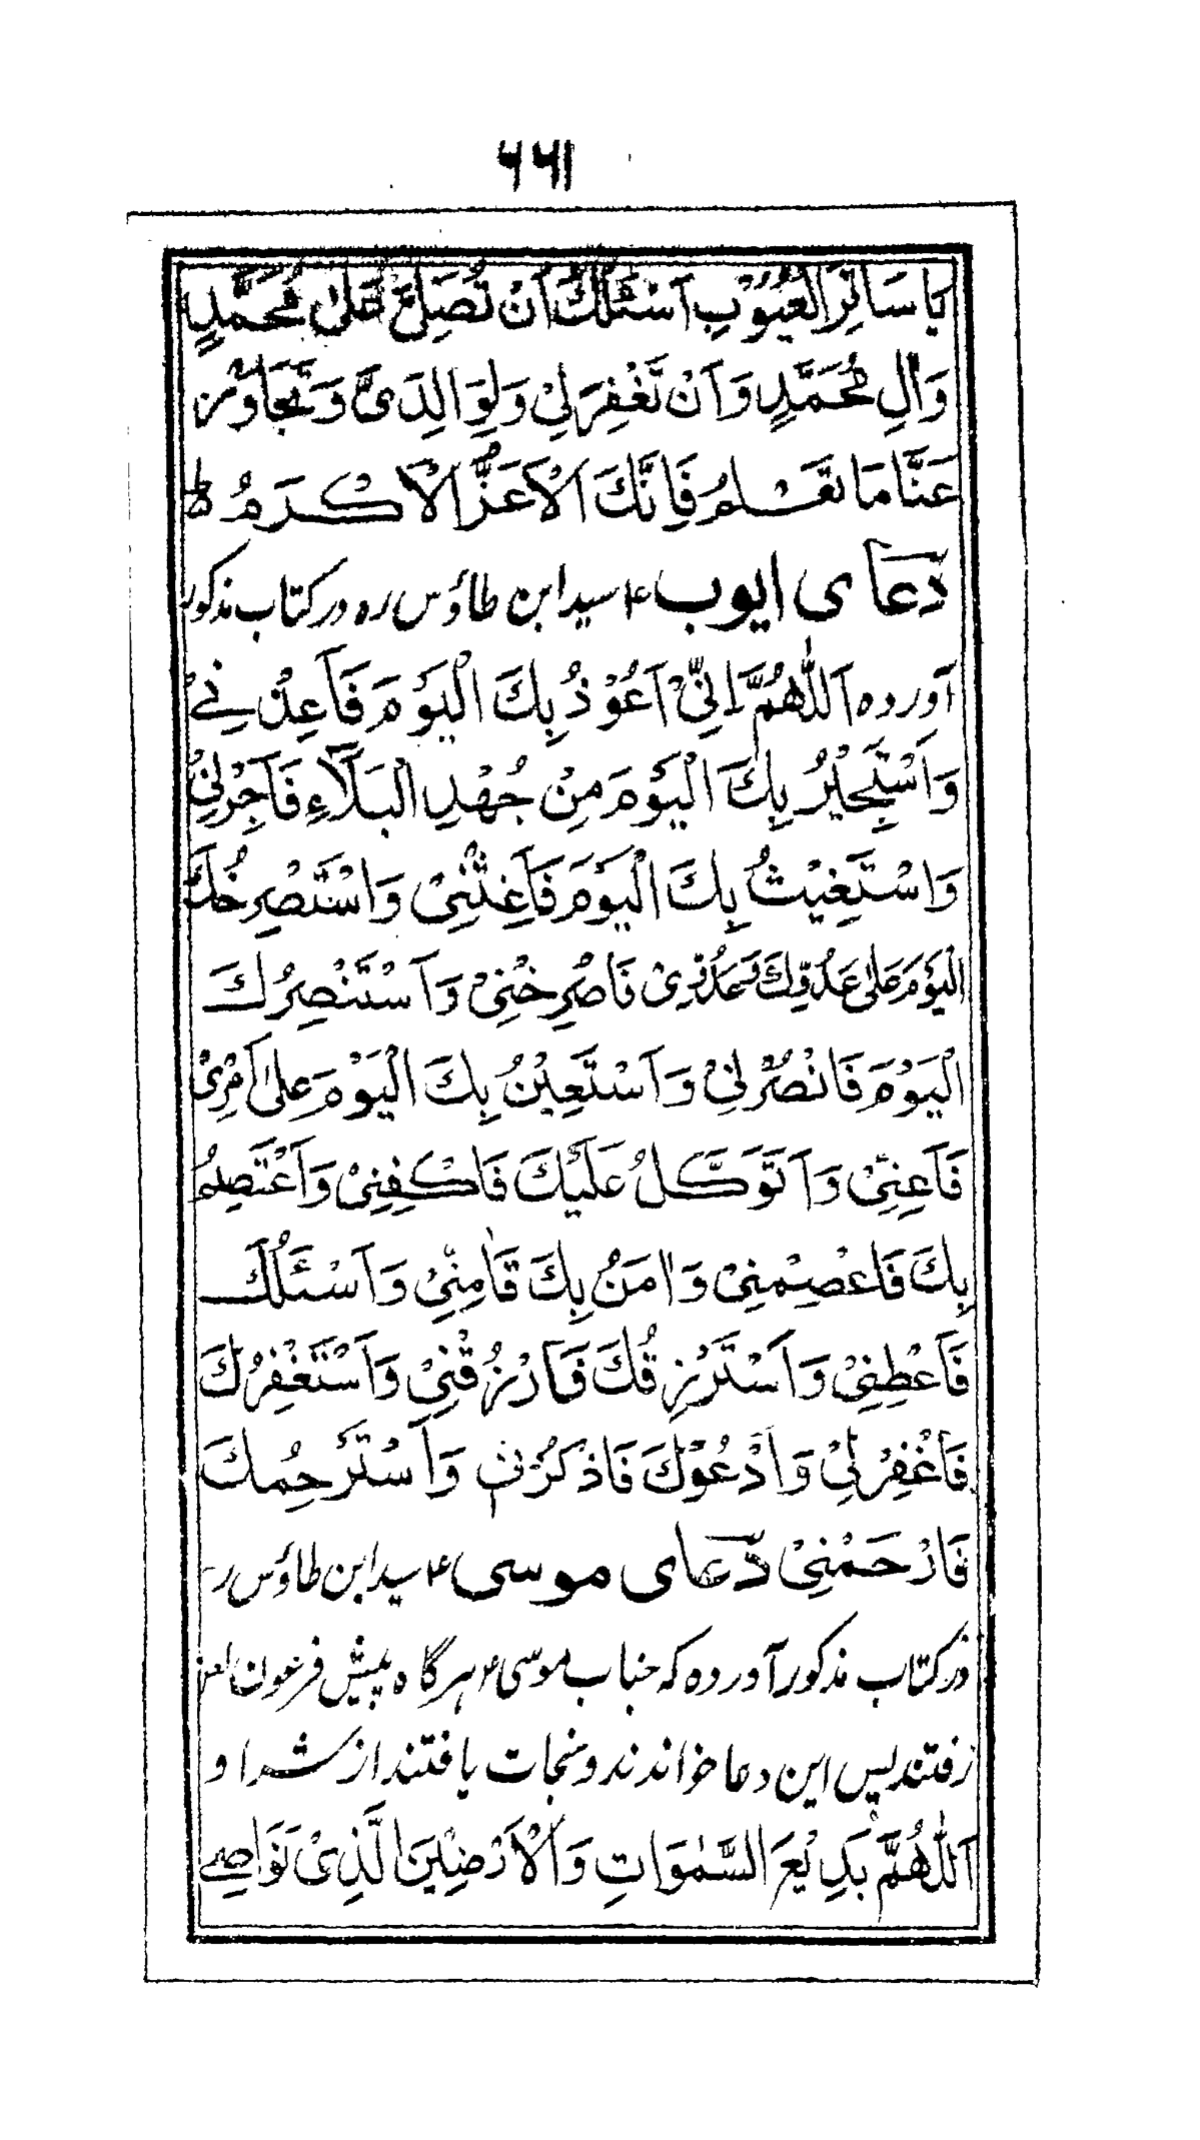 ۶۶۱
يَا سَاتِرَ الْعُيُوْبِ اَسْئَلُكَ اَنْ تُصَلِّيَ عَلٰى مُحَمَّدٍ
وَاٰلِ مُحَمَّدٍ وَاَنْ تَغْفِرَ لِيْ وَلِوَالِدَيَّ وَتَجَاوَزْ
عَنَّا مَا تَعْلَمُ فَاِنَّكَ الْاَعَزُّ الْاَكْرَمُ ط
دعای ایوب ۴ سید ابن طاؤس ره در کتاب مذکور
آورده اَللّٰهُمَّ اِنِّيْ اَعُوْذُ بِكَ الْيَوْمَ فَاَعِذْنِيْ
وَاَسْتَجِيْرُ بِكَ الْيَوْمَ مِنْ جُهْدِ الْبَلَآءِ فَاَجِرْنِيْ
وَاَسْتَغِيْثُ بِكَ الْيَوْمَ فَاَغِثْنِيْ وَاَسْتَصْرِخُكَ
الْيَوْمَ عَلٰى عَدُوِّكَ وَعَدُوِّيْ فَاصْرِخْنِيْ وَاَسْتَنْصِرُكَ
الْيَوْمَ فَانْصُرْنِيْ وَاَسْتَعِيْنُ بِكَ الْيَوْمَ عَلٰى اَمْرِيْ
فَاَعِنِّيْ وَاَتَوَكَّلُ عَلَيْكَ فَاكْفِنِيْ وَاَعْتَصِمُ
بِكَ فَاعْصِمْنِيْ وَاٰمَنُ بِكَ فَاٰمِنِّيْ وَاَسْئَلُكَ
فَاَعْطِنِيْ وَاَسْتَرْزِقُكَ فَارْزُقْنِيْ وَاَسْتَغْفِرُكَ
فَاغْفِرْ لِيْ وَاَدْعُوْكَ فَاذْكُرْنِي وَاَسْتَرْحِمُكَ
فَارْحَمْنِيْ دعای موسی ۴ سید ابن طاؤس ر
در کتاب مذکور آورده که جناب موسی ۴ هرگاه پیش فرعون لعن
رفتند پس این دعا خواندند و نجات یافتند از شر او
اَللّٰهُمَّ بَدِيْعَ السَّمٰوَاتِ وَالْاَرَضِيْنَ الَّذِيْ نَوَاصِي